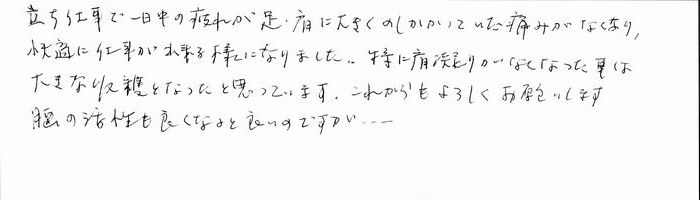 立ち仕事で一日中の疲れが足・肩に大きくのしかかっていた痛みがなくなり,
快適に仕事が出来る様になりました。特に肩凝りがなくなった事は
大きな収穫となったと思っています。これからもよろしくお願いします
脳の活性も良くなると良いのですが……